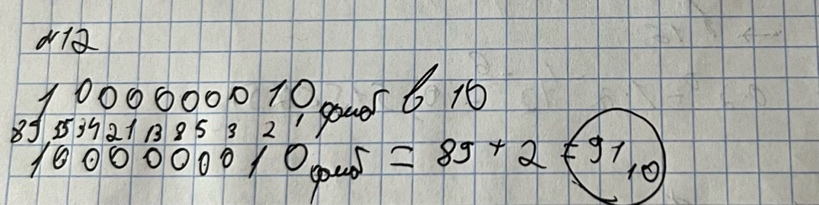 №12
1000000010фиб в 10
89 55 34 21 13 8 5 3 2 1
1000000010фиб = 89 + 2 = 91₁₀